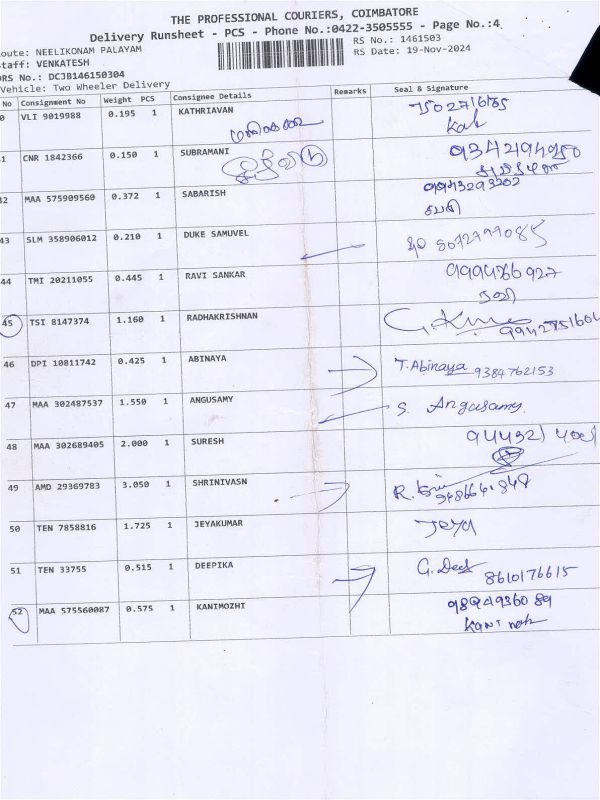 THE PROFESSIONAL COURIERS, COIMBATORE
Delivery Runsheet - PCS - Phone No.:0422-3505555 - Page No.:4
oute: NEELIKONAM PALAYAM
RS No.: 1461503
taff: VENKATESH
RS Date: 19-Nov-2024
DRS No.: DCJB146150304
Vehicle: Two Wheeler Delivery
No Consignment No Weight PCS Consignee Details Remarks Seal & Signature
0 VLI 9019988 0.195 1 KATHRIAVAN
41 CNR 1842366 0.150 1 SUBRAMANI
42 MAA 575909560 0.372 1 SABARISH 9943293202
சபரி
43 SLM 358906012 0.210 1 DUKE SAMUVEL 8072799085
44 TMI 20211055 0.445 1 RAVI SANKAR
ரவி
45 TSI 8147374 1.160 1 RADHAKRISHNAN 9942751604
46 DPI 10811742 0.425 1 ABINAYA T. Abinaya 9384762153
47 MAA 302487537 1.550 1 ANGUSAMY S. Angusamy
48 MAA 302689405 2.000 1 SURESH
49 AMD 29369783 3.050 1 SHRINIVASN
50 TEN 7858816 1.725 1 JEYAKUMAR Jeya
51 TEN 33755 0.515 1 DEEPIKA G. Deep 8610176615
52 MAA 575560087 0.575 1 KANIMOZHI